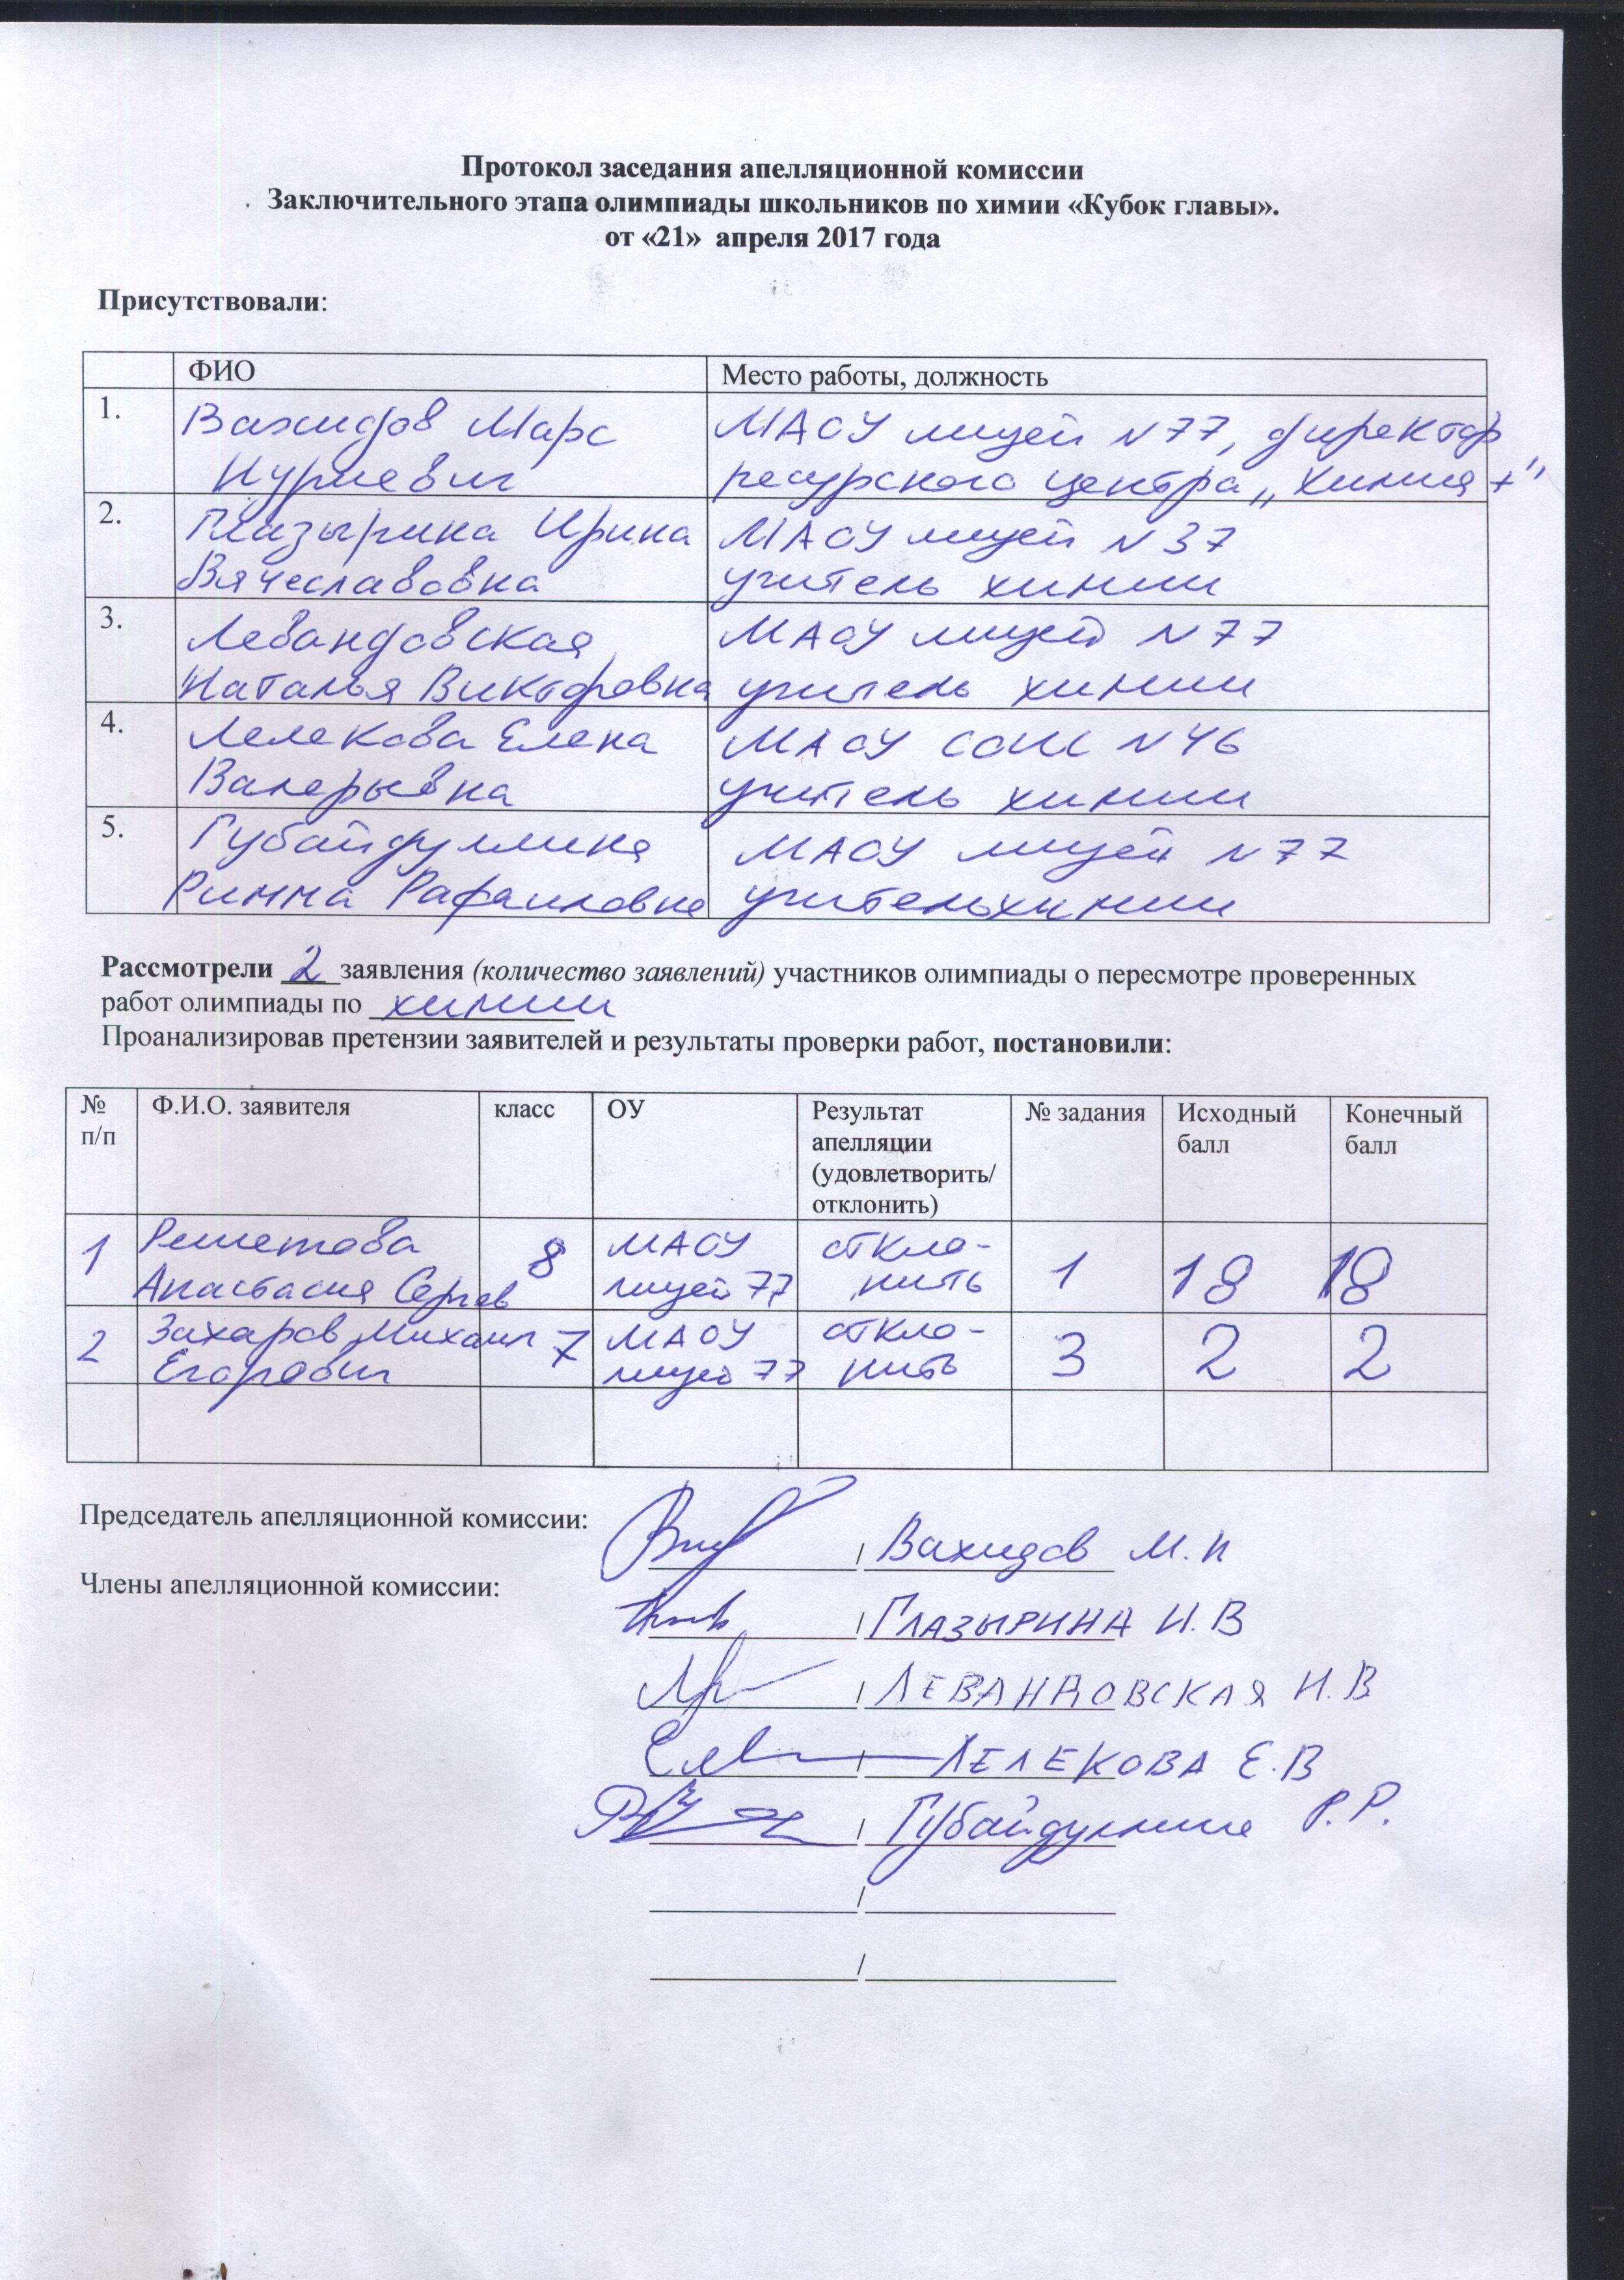 Протокол заседания апелляционной комиссии
Заключительного этапа олимпиады школьников по химии «Кубок главы».
от «21» апреля 2017 года
Присутствовали:
ФИО Место работы, должность
1. Вахидов Марс МАОУ лицей №77, директор
Нуриевич ресурсного центра „Химия+"
2. Глазырина Ирина МАОУ лицей №37
Вячеславовна учитель химии
3. Левандовская МАОУ лицей №77
Наталья Викторовна учитель химии
4. Лелекова Елена МАОУ СОШ №46
Валерьевна учитель химии
5. Губайдуллина МАОУ лицей №77
Римма Рафаиловна учитель химии
Рассмотрели 2 заявления (количество заявлений) участников олимпиады о пересмотре проверенных
работ олимпиады по химии
Проанализировав претензии заявителей и результаты проверки работ, постановили:
№ Ф.И.О. заявителя класс ОУ Результат № задания Исходный Конечный
п/п апелляции балл балл
(удовлетворить/
отклонить)
1 Решетова 8 МАОУ откло- 1 18 18
Анастасия Сергеев лицей 77 нить
2 Захаров Михаил 7 МАОУ откло- 3 2 2
Егорович лицей 77 нить
Председатель апелляционной комиссии: / Вахидов М.Н
Члены апелляционной комиссии: / Глазырина И.В
/ Левандовская Н.В
/ Лелекова Е.В
/ Губайдуллина Р.Р.
/
/